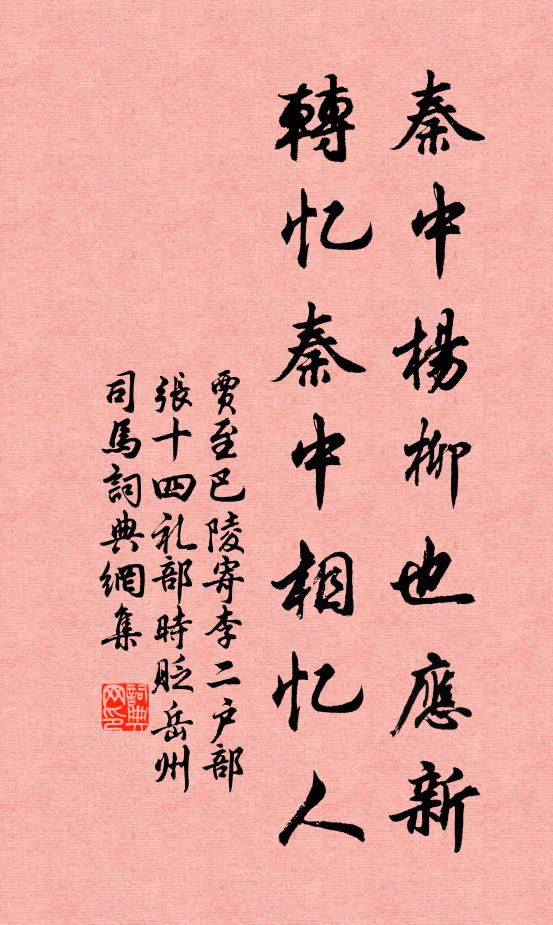 秦中楊柳也應新
轉忆秦中相忆人
賈至巴陵寄李二戶部
張十四礼部時貶岳州
司馬詞典網集
詞典网印